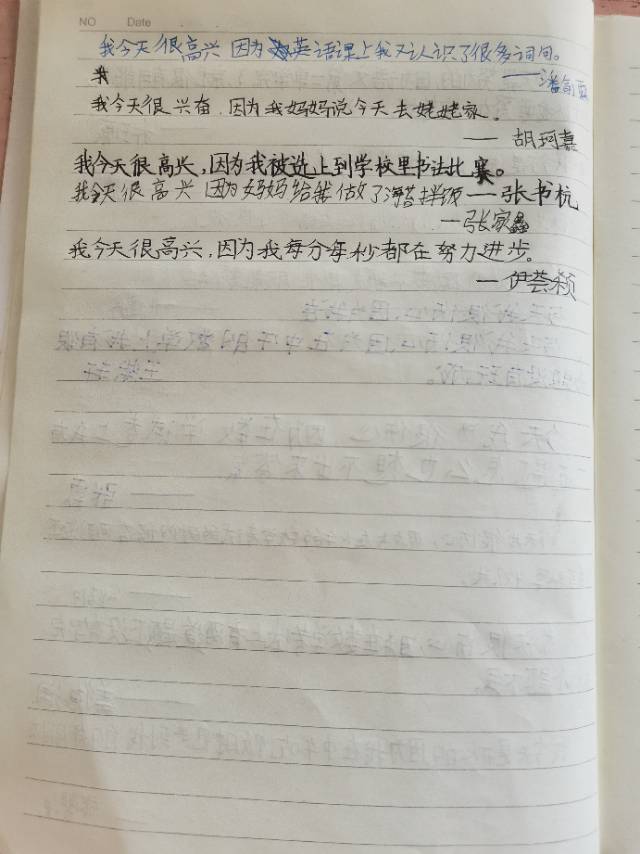 NO Date
我今天很高兴 因为英语课上我又认识了很多词句。
——潘
我
我今天很兴奋,因为我妈妈说今天去姥姥家.
——胡珂嘉
我今天很高兴,因为我被选上到学校里书法比赛。
我今天很高兴 因为妈妈给我做了海苔拌饭——张书杭
——张家鑫
我今天很高兴,因为我每分每秒都在努力进步。
——伊荟